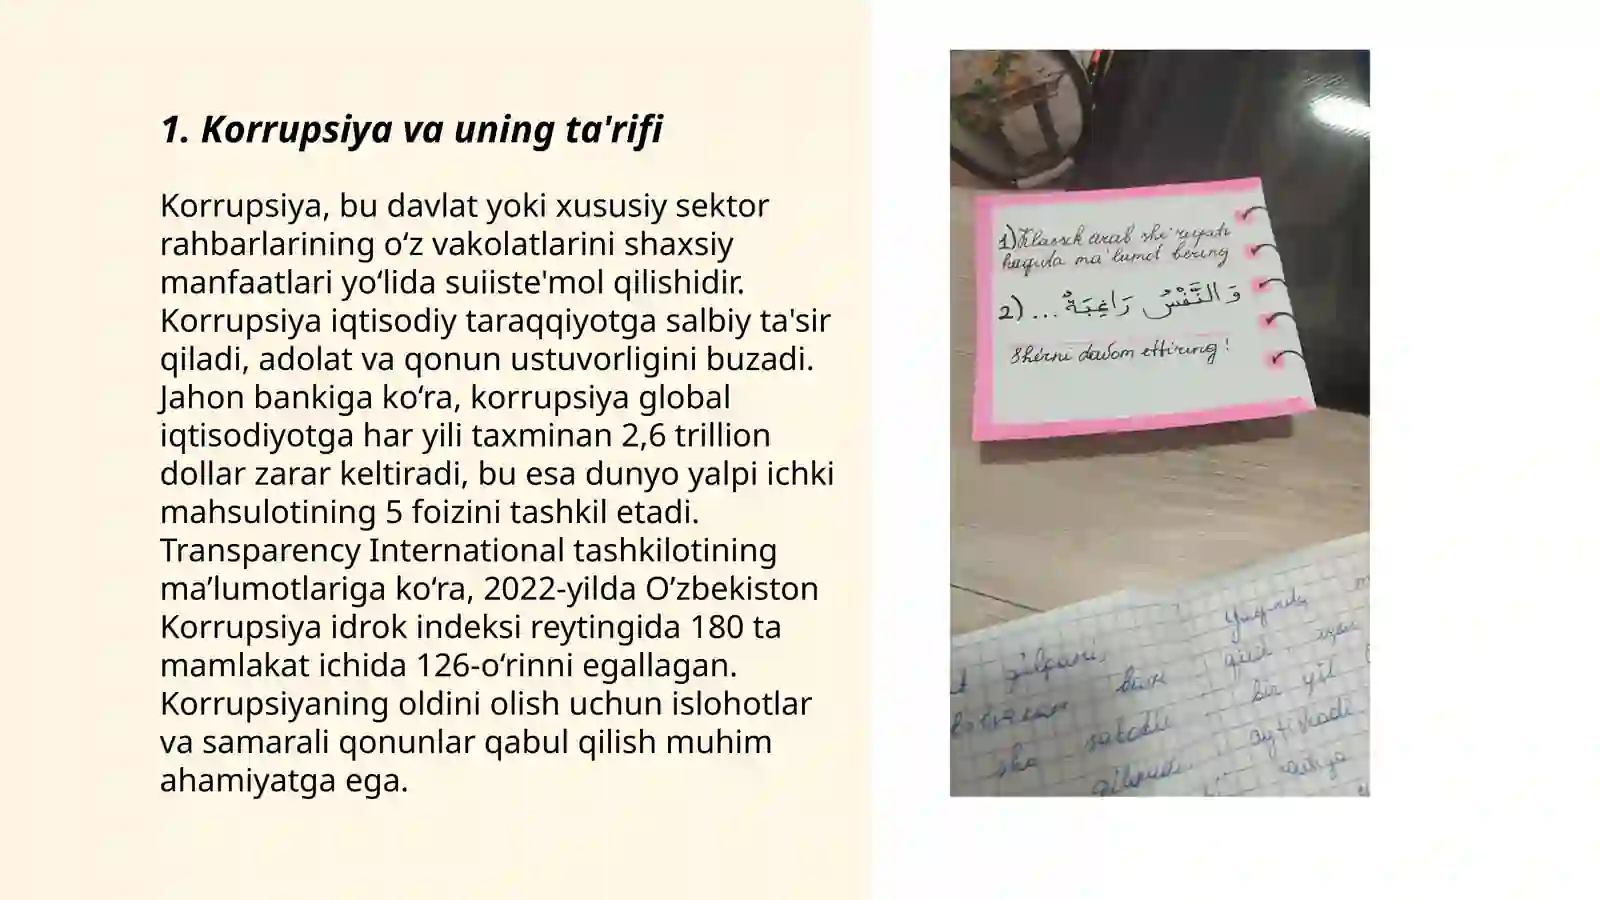 1. Korrupsiya va uning ta'rifi
Korrupsiya, bu davlat yoki xususiy sektor
rahbarlarining o‘z vakolatlarini shaxsiy
manfaatlari yo‘lida suiiste'mol qilishidir.
Korrupsiya iqtisodiy taraqqiyotga salbiy ta'sir
qiladi, adolat va qonun ustuvorligini buzadi.
Jahon bankiga ko‘ra, korrupsiya global
iqtisodiyotga har yili taxminan 2,6 trillion
dollar zarar keltiradi, bu esa dunyo yalpi ichki
mahsulotining 5 foizini tashkil etadi.
Transparency International tashkilotining
ma’lumotlariga ko‘ra, 2022-yilda O’zbekiston
Korrupsiya idrok indeksi reytingida 180 ta
mamlakat ichida 126-o‘rinni egallagan.
Korrupsiyaning oldini olish uchun islohotlar
va samarali qonunlar qabul qilish muhim
ahamiyatga ega.
1) Klassik arab she'riyati
haqida ma'lumot bering
2) وَ النَّفْسُ رَاغِبَةٌ ...
She'rni davom ettiring!
bir yil